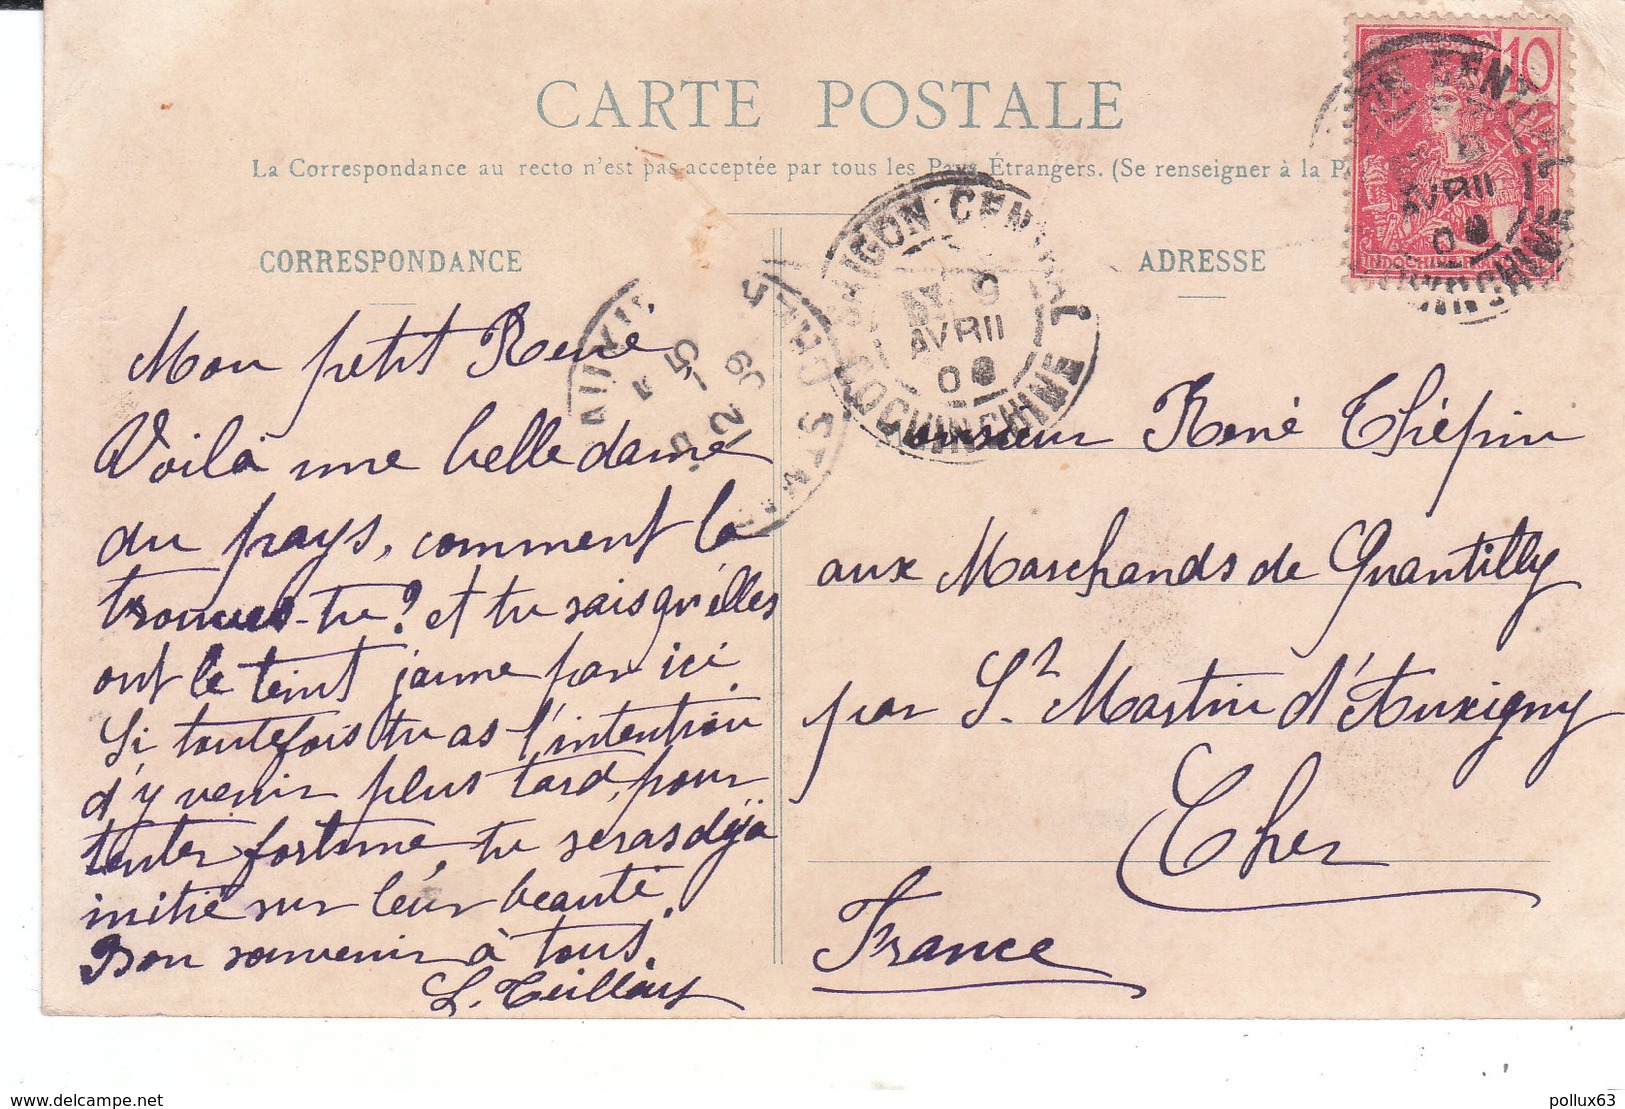 CARTE POSTALE
La Correspondance au recto n'est pas acceptée par tous les Pays Étrangers. (Se renseigner à la
CORRESPONDANCE
Mon petit René,
Voilà une belle dame
du pays, comment la
trouves-tu? et tu sais qu'elles
ont le teint jaune par ici.
Si toutefois tu as l'intention
d'y venir plus tard, pour
tenter fortune, tu seras déjà
initié sur leur beauté.
Bon souvenir à tous.
ADRESSE
Monsieur René Thépin
aux Marchands de Quantilly
par St Martin d'Auxigny
Cher
France
10
INDOCHINE FRANÇAISE
CENTRAL
AVRIL
SAIGON CENTRAL
9
AVRIL
COCHINCHINE
delcampe.net
pollux63